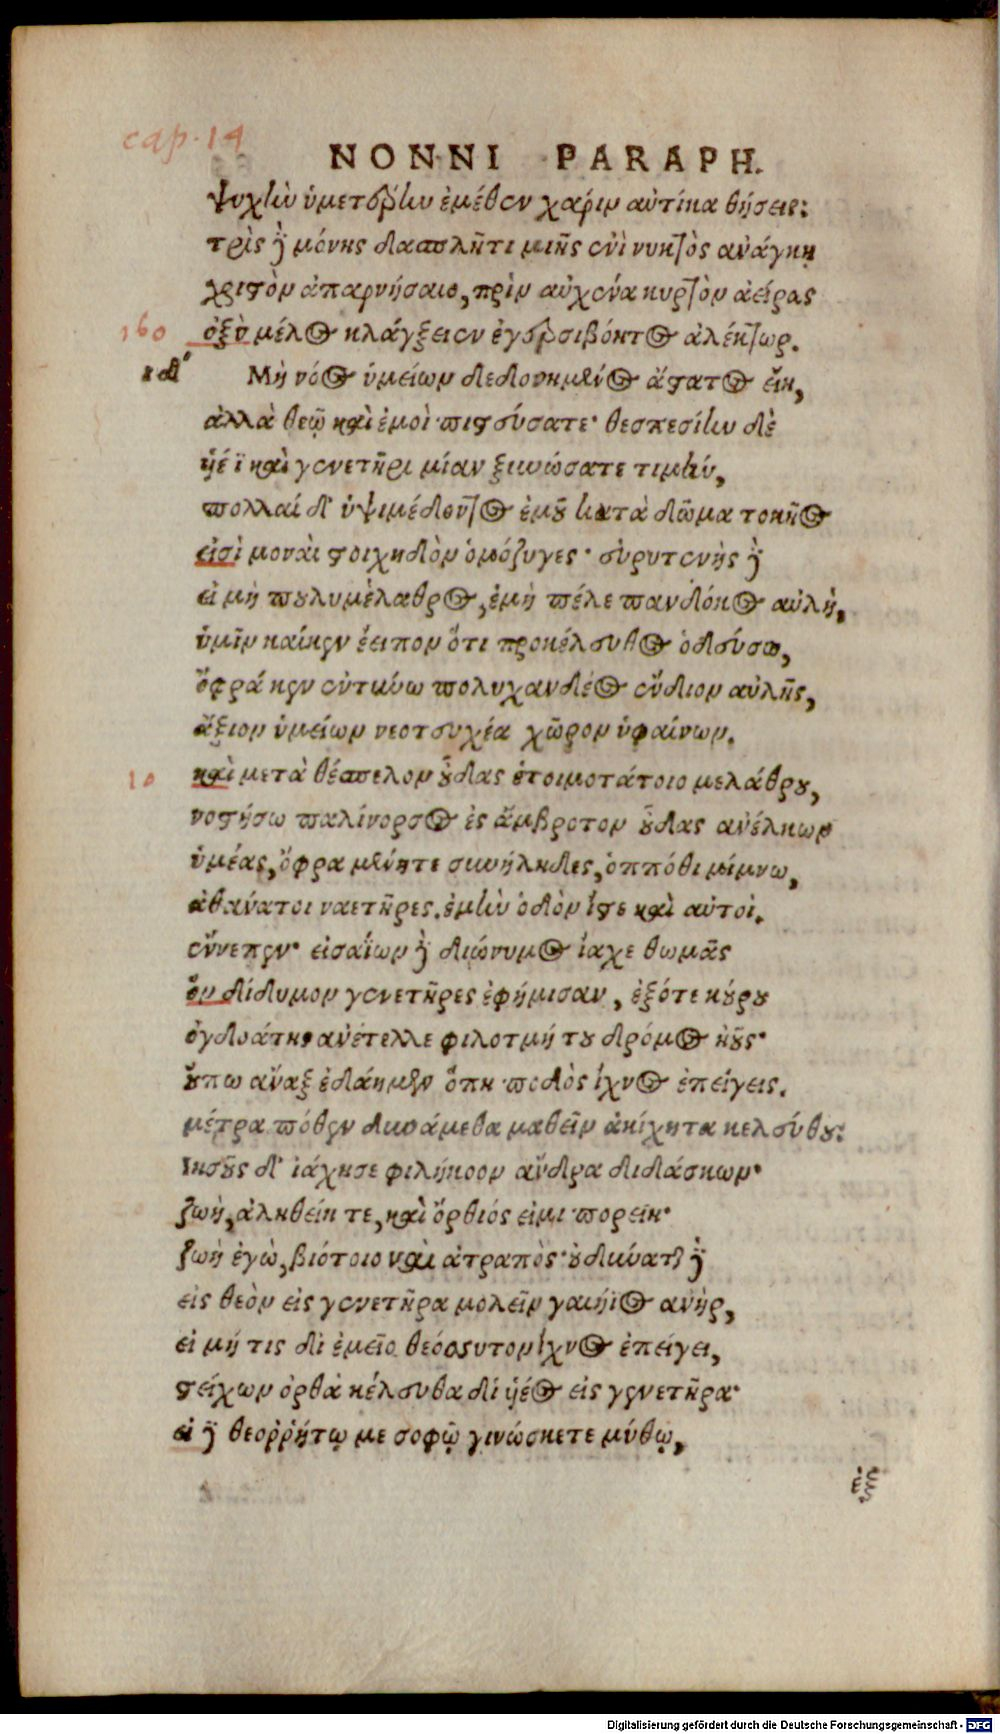 cap. 14
NONNI PARAPH.
ψυχὴν ὑμετέρην ἐμέθεν χάριν αὐτίκα θήσεις;
τρὶς γὰρ μόνης δασπλῆτι μιῆς ἐνὶ νυκτὸς ἀνάγκῃ
χριστὸν ἀπαρνήσαιο, πρὶν αὐχένα κυρτὸν ἀείρας
160 ὀξὺ μέλος κλάγξειεν ἐγερσιβόητος ἀλέκτωρ.
ιδ´ Μὴ νόος ὑμείων δεδονημένος ἄστατος εἴη,
ἀλλὰ θεῷ καὶ ἐμοὶ πιστεύσατε· θεσπεσίην δὲ
υἱέϊ καὶ γενετῆρι μίαν ξυνώσατε τιμήν,
πολλαί δ' ὑψιμέδοντος ἐμοῦ κατὰ δῶμα τοκῆος
εἰσὶ μοναὶ στοιχηδὸν ὁμόζυγες· εὐρυτενὴς γὰρ
εἰ μὴ πουλυμέλαθρος, ἐμὴ πέλε πανδόκος αὐλή,
ὑμῖν καί κεν ἔειπον ὅτι προκέλευθος ὁδεύσω,
ὄφρά κεν ἐντύνω πολυχανδέος ἔνδιον αὐλῆς,
ἄξιον ὑμείων νεοτευχέα χῶρον ὑφαίνων.
10 καὶ μετὰ θέσπελον οὖδας ἑτοιμοτάτοιο μελάθρου,
νοστήσω παλίνορσος ἐς ἄμβροτον οὖδας ἀνέλκων
ὑμέας, ὄφρα μένητε συνήλυδες, ὁππόθι μίμνω,
ἀθάνατοι ναετῆρες. ἐμὴν ὁδὸν ἴστε καὶ αὐτοί.
ἔννεπεν· εἰσαΐων γὰρ διώνυμος ἴαχε θωμᾶς
ὃν δίδυμον γενετῆρες ἐφήμισαν, ἐξότε κούρου
ὀγδοάτη ἀνέτελλε φιλοτμήτου δρόμος ἠοῦς·
οὔπω ἄναξ ἐδάημεν ὅπη ποδὸς ἴχνος ἐπείγεις.
μέτρα πόθεν δυνάμεθα μαθεῖν ἀκίχητα κελεύθου;
Ἰησοῦς δ' ἰάχησε φιλήκοον ἄνδρα διδάσκων·
ζωή, ἀληθείη τε, καὶ ὄρθιός εἰμι πορείη·
ζωὴ ἐγώ, βιότοιο καὶ ἀτραπός· οὐ δύναται γὰρ
εἰς θεὸν εἰς γενετῆρα μολεῖν γαιήϊος ἀνήρ,
εἰ μή τις δι ἐμεῖο θεόσσυτον ἴχνος ἐπείγει,
στείχων ὀρθὰ κέλευθα δι υἱέος εἰς γενετῆρα·
εἰ γὰρ θεορρήτῳ με σοφῷ γινώσκετε μύθῳ,
ἐξ
Digitalisierung gefördert durch die Deutsche Forschungsgemeinschaft - DFG